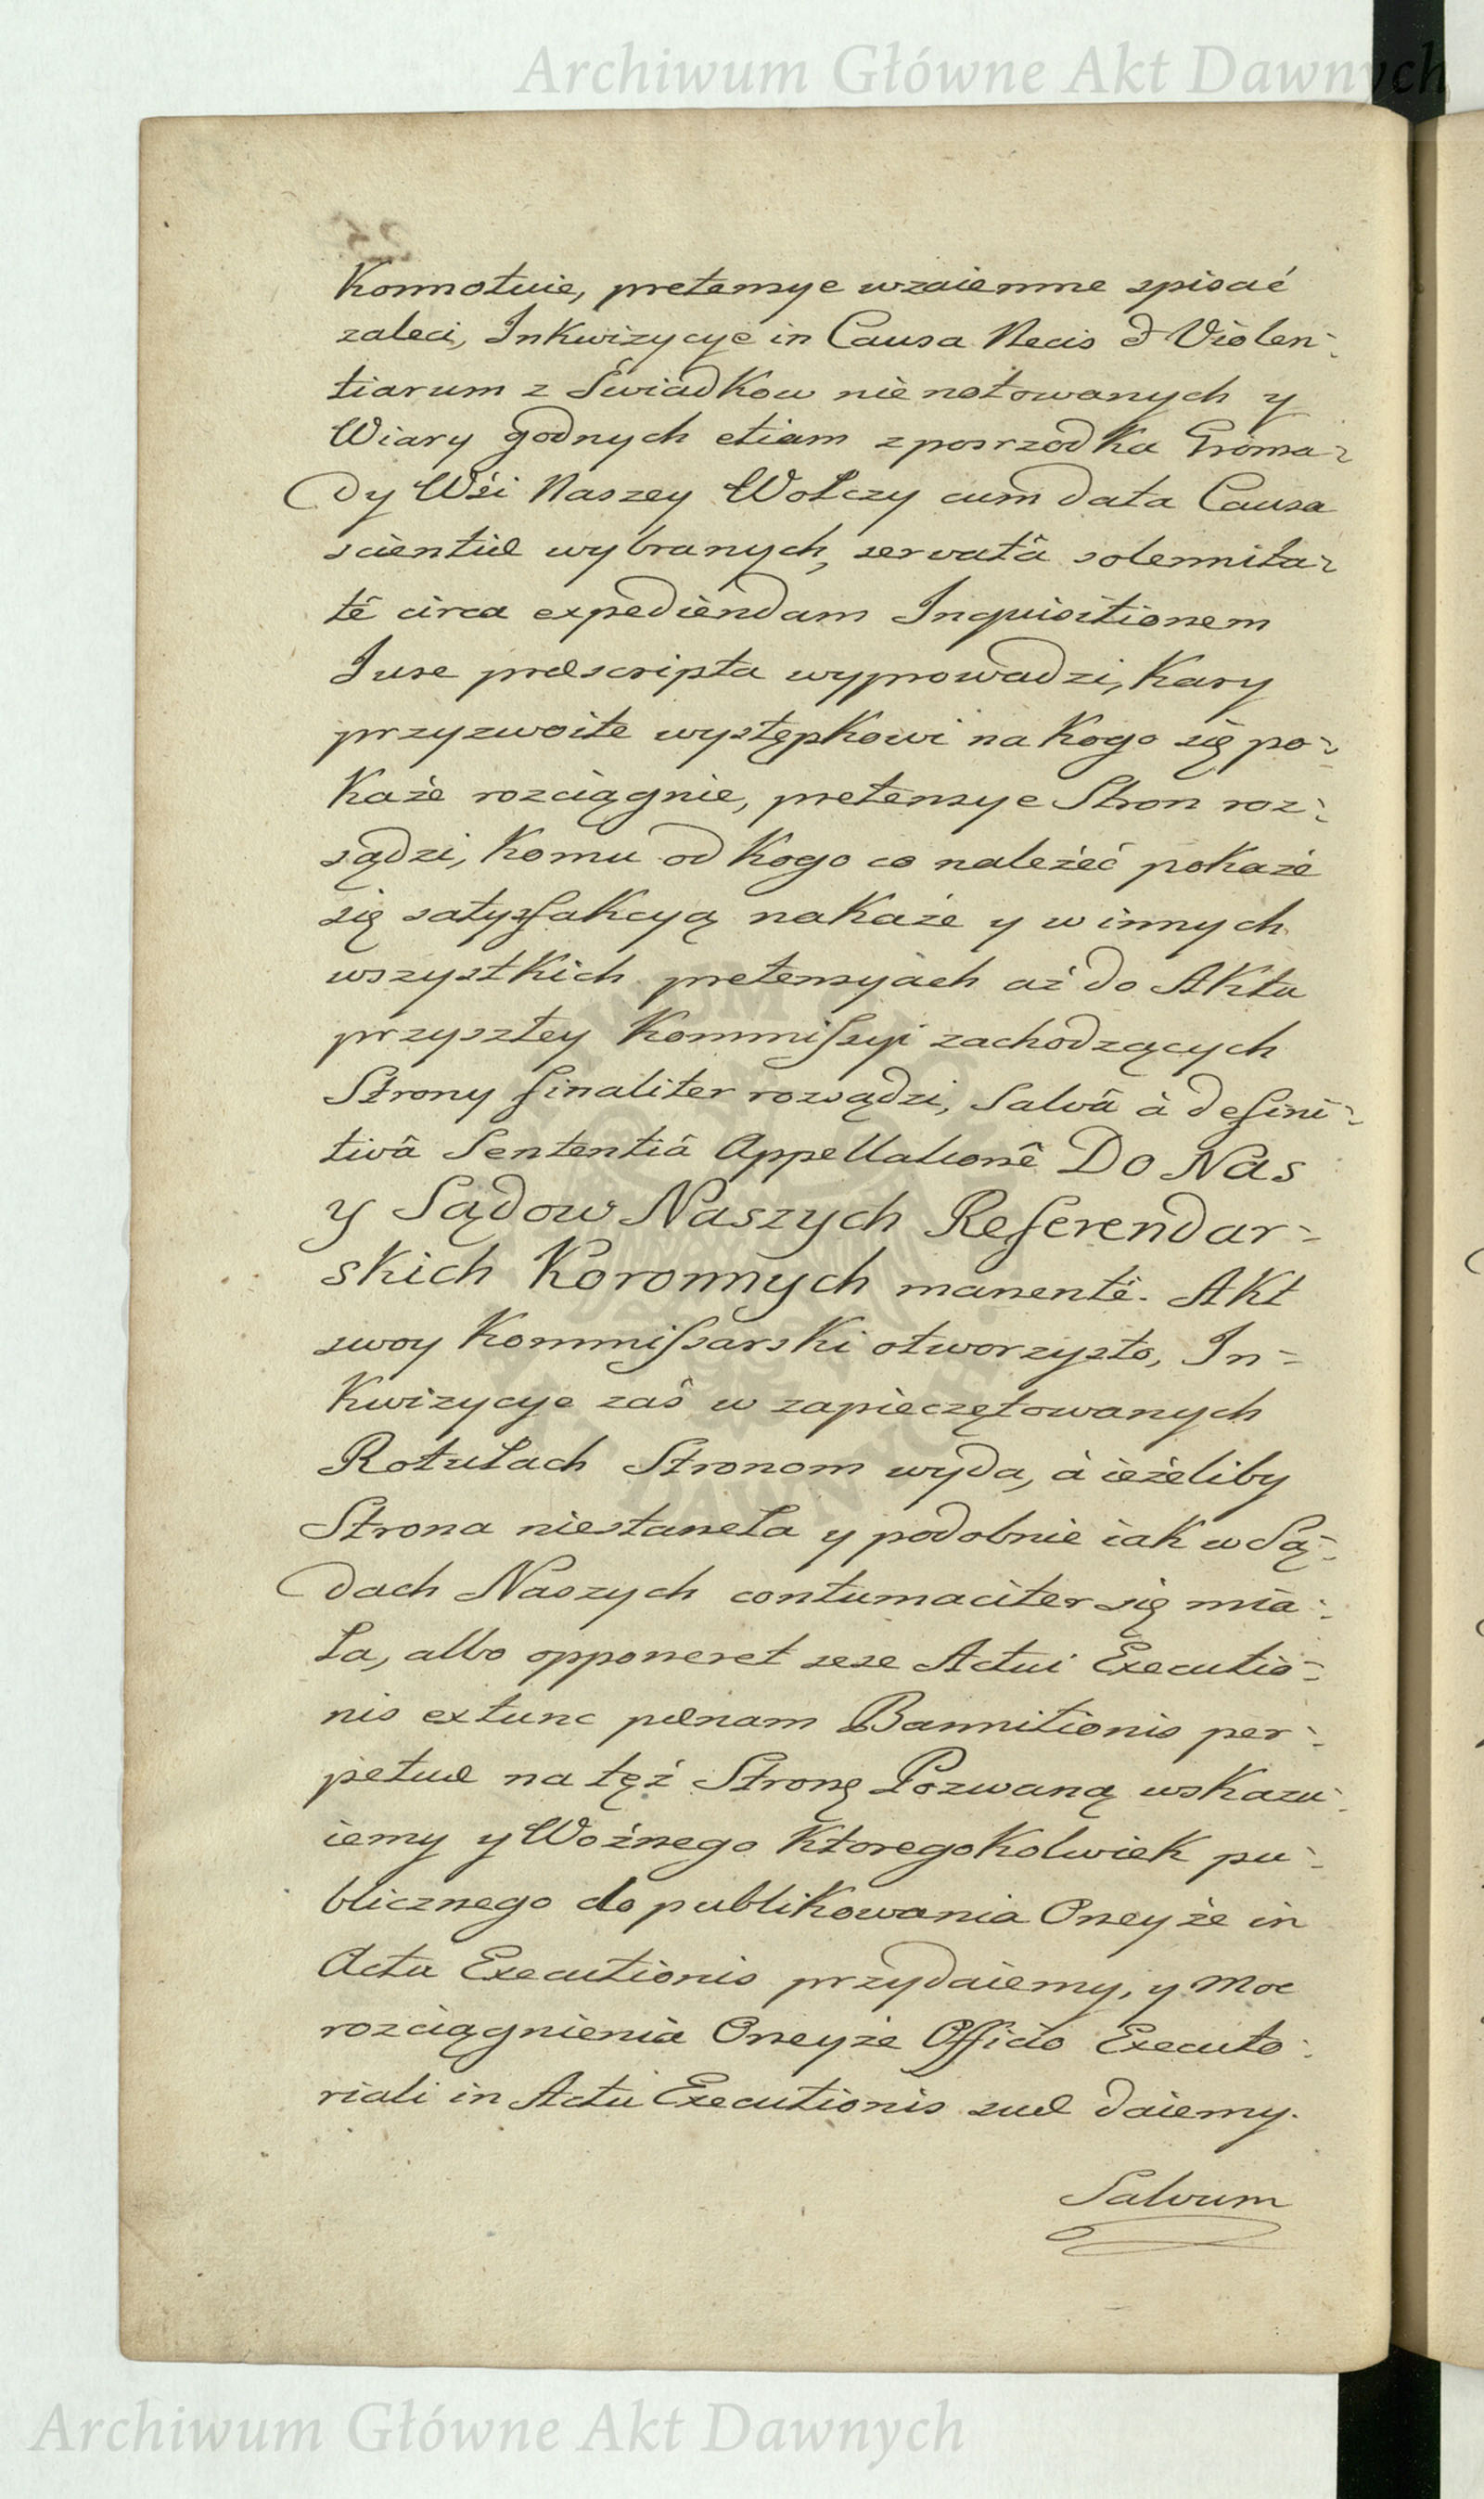 Archiwum Główne Akt Dawnych
Konnotuie, pretensye wzaiemne spisać
zaleci, Inkwizycye in Causa Necis & Violen-
tiarum z Swiadkow nie notowanych y
Wiary godnych etiam z posrzodka Groma-
dy Wśi Naszey Wołczy cum data Causa
scientiæ wybranych, servatâ solennita-
tê circa expediendam Inquisitionem
Iure præscripta wyprowadzi, Kary
przyzwoite występkowi na kogo się po-
każe rozciągnie, pretensye Stron roz-
sądzi, komu od kogo co należéć pokaże
się satysfakcyą nakaże y w innych
wszystkich pretensyach aż do Aktu
przyszłey Kommissyi zachodzących
Strony finaliter rozsądzi, Salvâ à defini-
tivâ Sententiâ Appellationê Do Nas
y Sądow Naszych Referendar-
skich Koronnych manentê. Akt
swoy Kommissarski otworzysto, In-
kwizycye zaś w zapieczętowanych
Rotułach Stronom wyda, à ieżeliby
Strona niestaneła y podobnie iak w Są-
dach Naszych contumaciter się mia-
ła, albo opponeret sese Actui Executio-
nis extunc pœnam Bannitionis per-
petuæ na tęż Stronę Pozwaną wskazu-
iemy y Woźnego ktoregokolwiek pu-
blicznego do publikowania Oneyże in
Actu Executionis przydaiemy, y moc
rozciągnienia Oneyże Officio Executo-
riali in Actu Executionis suæ daiemy.
Salvum
Archiwum Główne Akt Dawnych